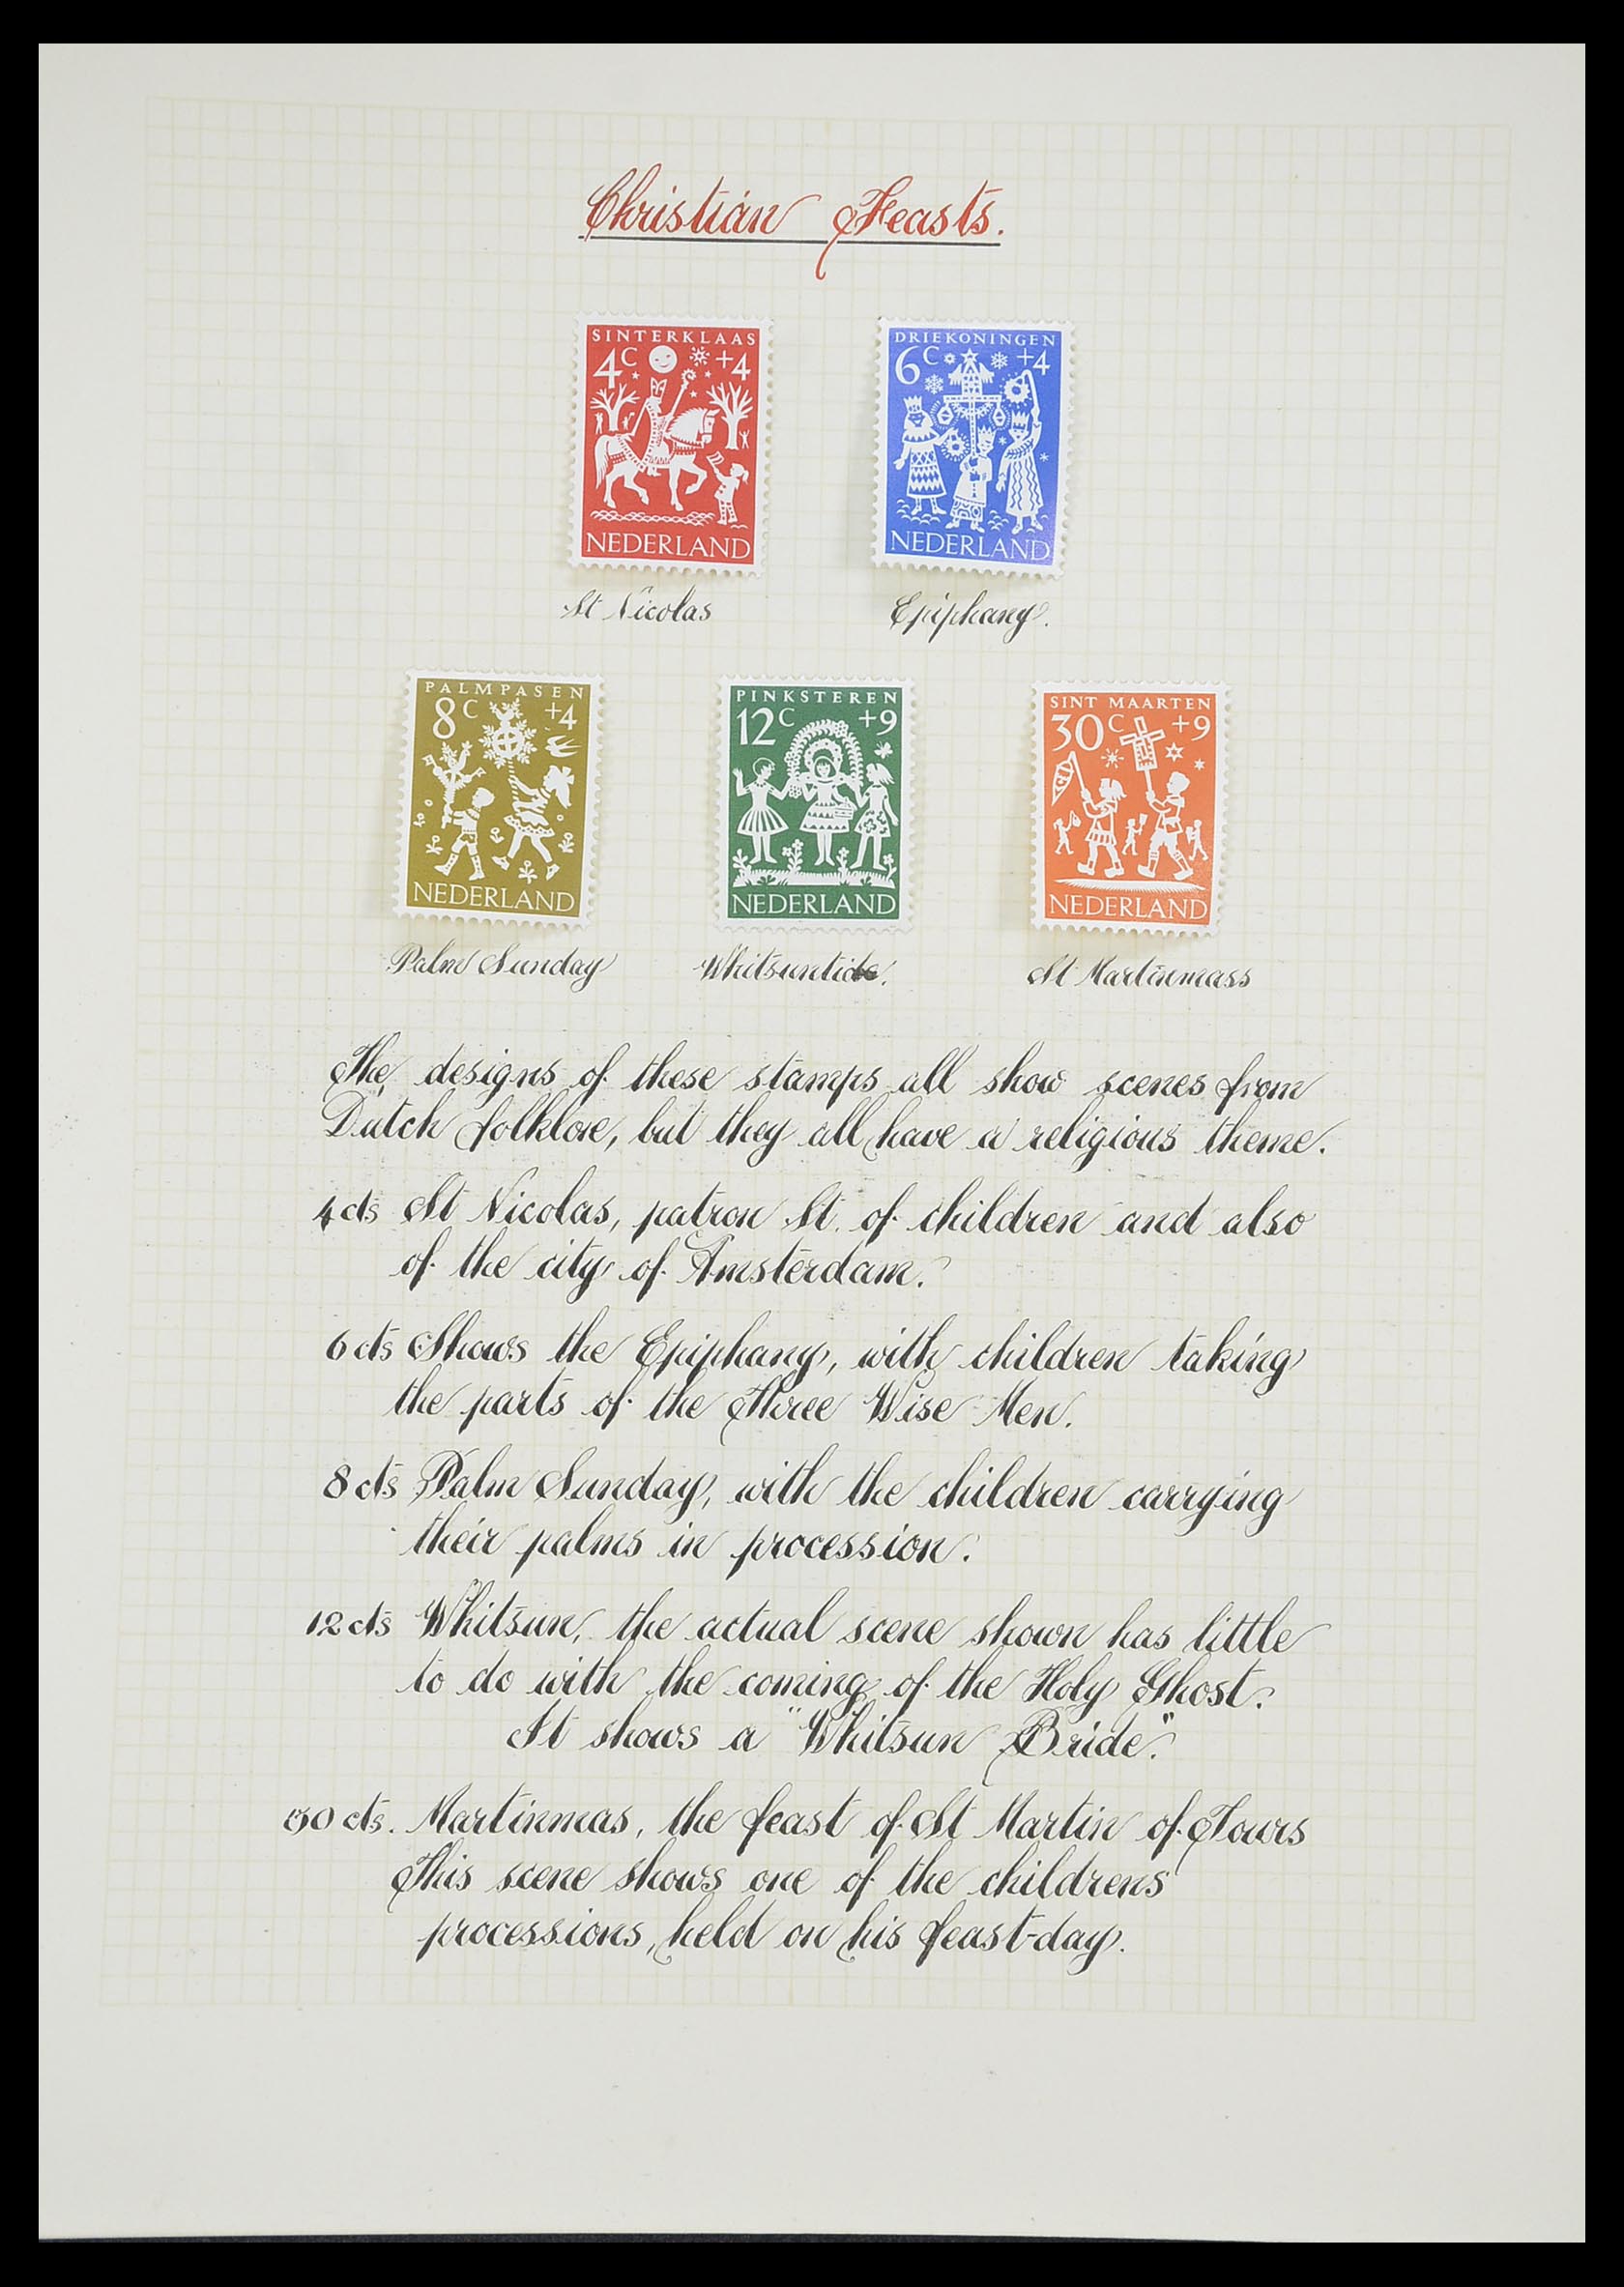 Christian Feasts.
SINTERKLAAS
4C +4
NEDERLAND
St Nicolas
DRIEKONINGEN
6C +4
NEDERLAND
Epiphany.
PALMPASEN
8C +4
NEDERLAND
Palm Sunday
PINKSTEREN
12C +9
NEDERLAND
Whitsuntide.
SINT MAARTEN
30C +9
NEDERLAND
St Martinmass
The designs of these stamps all show scenes from
Dutch folklore, but they all have a religious theme.
4 cts St Nicolas, patron St. of children and also
of the city of Amsterdam.
6 cts Shows the Epiphany, with children taking
the parts of the Three Wise Men.
8 cts Palm Sunday, with the children carrying
their palms in procession.
12 cts Whitsun, the actual scene shown has little
to do with the coming of the Holy Ghost.
It shows a "Whitsun Bride".
30 cts. Martinmas, the feast of St Martin of Tours
This scene shows one of the childrens'
processions, held on his feast-day.